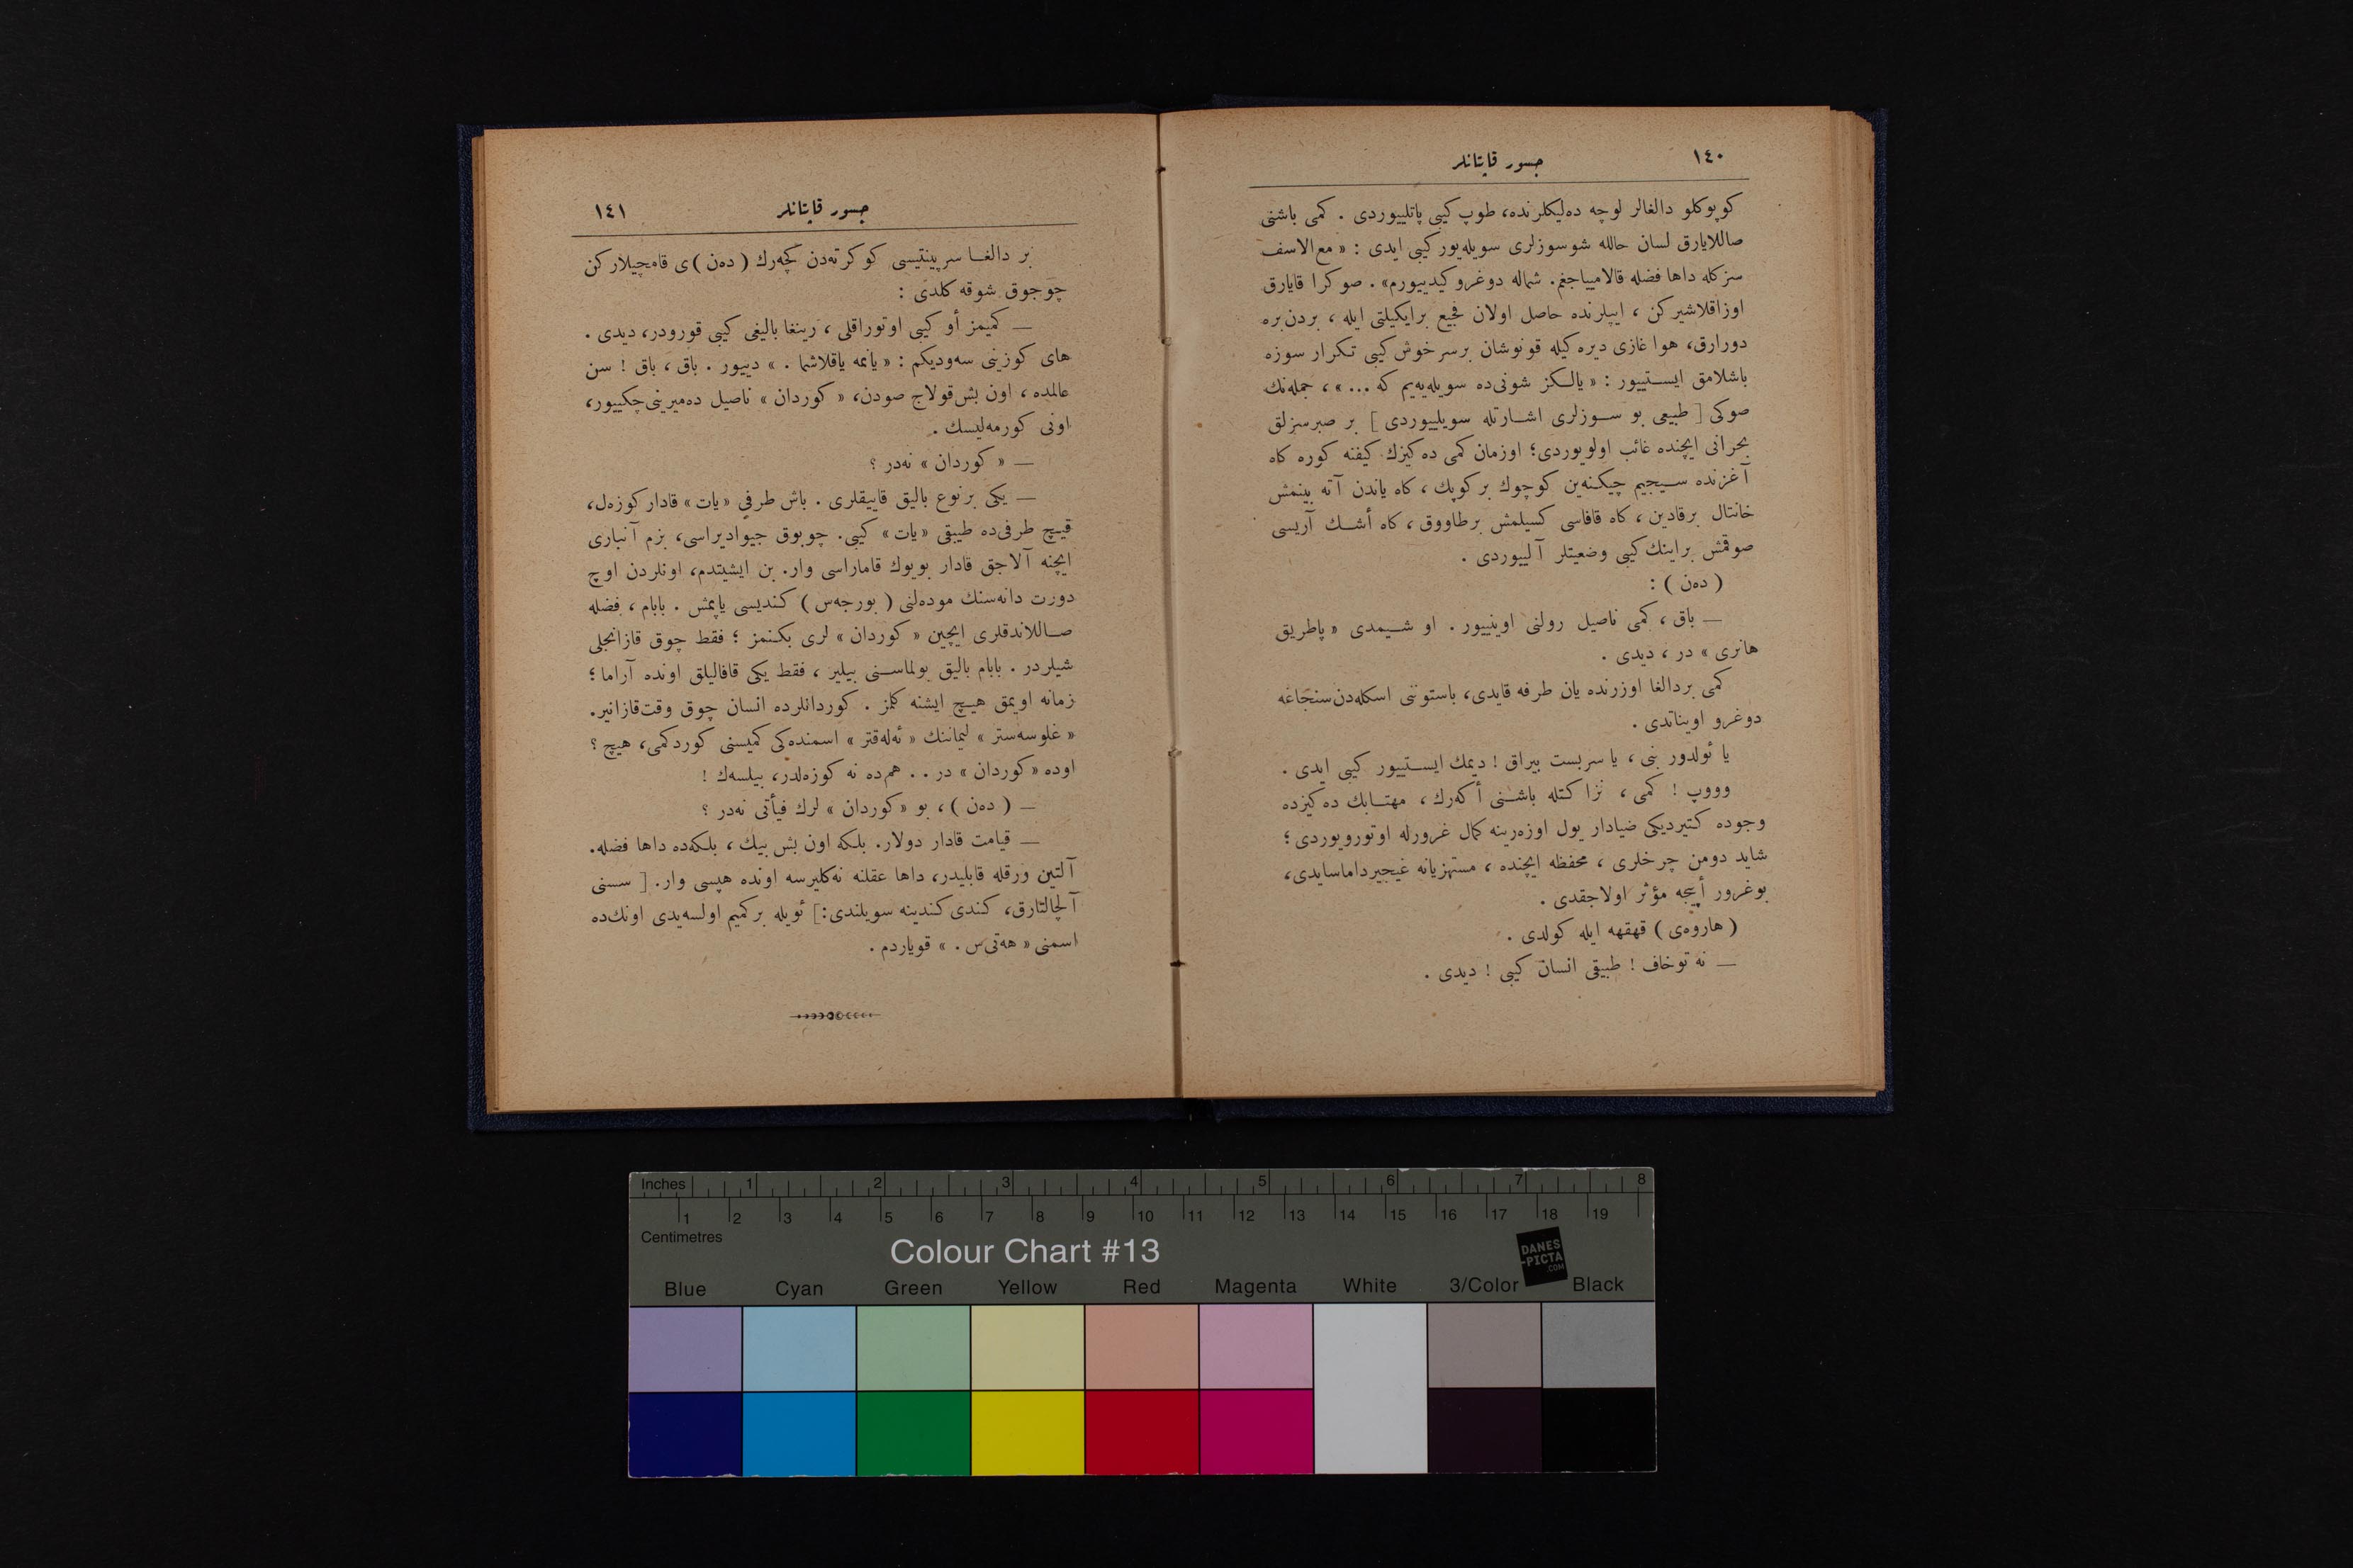 ١٤٠
جسور قاپتانلر
كوپوكلو دالغالر لوچه ده‌ليكلرنده، طوپ كيبی پاتلييوردی . كمی باشنی
صاللايارق لسان حالله شو سوزلری سويله‌يور كيبی ايدی : « مع‌الاسف
سزكله داها فضله قالامياجغم. شماله دوغرو كيدييورم» . صوكرا قايارق
اوزاقلاشيركن ، ايپلرنده حاصل اولان فجيع برايكيلتی ايله ، بردن‌بره
دورارق، هوا غازی ديره‌كيله قونوشان برسرخوش كيبی تكرار سوزه
باشلامق ايستييور : « يالكز شونی‌ده سويله‌يه‌يم كه ... » ، جمله‌نك
صوكی [ طبيعی بو سوزلری اشارتله سويلييوردی ] بر صبرسزلق
بحرانی ايچنده غائب اولويوردی؛ اوزمان كمی ده‌كيزك كيفنه كوره كاه
آغزنده سيجيم چيكنه‌ين كوچوك بركوپك ، كاه ياندن آته بينمش
خانتال برقادين ، كاه قافاسی كسيلمش برطاووق ، كاه أشك آريسی
صوقمش براينك كيبی وضعيتلر آلييوردی .
( ده‌ن ) :
— باق ، كمی ناصيل رولنی اوينييور . او شيمدی « پاطريق
هانری » در ، ديدی .
كمی بردالغا اوزرنده يان طرفه قايدی، باستونی اسكله‌دن سنجاغه
دوغرو اويناتدی .
يا ئولدور بنی ، يا سربست بيراق ! ديمك ايستييور كيبی ايدی .
وووپ ! كمی ، نزاكتله باشنی أكه‌رك ، مهتابك ده‌كيزده
وجوده كتيرديكی ضيادار يول اوزه‌رينه كمال غرورله اوتورويوردی ؛
شايد دومن چرخلری ، محفظه ايچنده ، مستهزيانه غيجيرداماسايدی،
بوغرور أپيجه مؤثر اولاجقدی .
( هاروه‌ی ) قهقهه ايله كولدی .
— نه توخاف ! طبيقی انسان كيبی ! ديدی .
جسور قاپتانلر
١٤١
بر دالغا سرپينتيسی كوكرته‌دن كچه‌رك ( ده‌ن )ی قامچيلاركن
چوجوق شوقه كلدی :
— كميمز أو كيبی اوتوراقلی ، رينغا باليغی كيبی قورودر، ديدی .
های كوزينی سه‌وديكم : « يانمه ياقلاشما . » دييور . باق ، باق ! سن
عالمده ، اون بش قولاج صودن، « كوردان » ناصيل ده‌ميرينی چكييور،
اونی كورمه‌ليسك .
— « كوردان » نه‌در ؟
— يكی برنوع باليق قاييقلری . باش طرفی « يات » قادار كوزه‌ل،
قيچ طرفی‌ده طيبقی « يات » كيبی. چوبوق جيواديراسی، بزم آنباری
ايچنه آلاجق قادار بويوك قاماراسی وار. بن ايشيتدم، اونلردن اوچ
دورت دانه‌سنك موده‌لنی ( بورجه‌س ) كنديسی ياپمش . بابام ، فضله
صاللاندقلری ايچين « كوردان » لری بكنمز ؛ فقط چوق قازانجلی
شيلردر . بابام باليق بولماسنی بيلير ، فقط يكی قافاليلق اونده آراما ؛
زمانه اويمق هيچ ايشنه كلمز . كوردانلرده انسان چوق وقت‌قازانير.
« غلوسه‌ستر » ليماننك « ئه‌له‌قتر » اسمنده‌كی كميسنی كوردكمی، هيچ ؟
اوده « كوردان » در . . هم‌ده نه كوزه‌لدر، بيلسه‌ك !
— ( ده‌ن ) ، بو « كوردان » لرك فيأتی نه‌در ؟
— قيامت قادار دولار. بلكه اون بش بيك ، بلكه‌ده داها فضله.
آلتين ورقله قابليدر، داها عقلنه نه‌كليرسه اونده هپسی وار. [ سسنی
آلچالتارق، كندی كندينه سويلندی :] ئويله بركميم اولسه‌يدی اونك‌ده
اسمنی « هه‌تی‌س . » قوياردم .
Inches 1 2 3 4 5 6 7 8
1 2 3 4 5 6 7 8 9 10 11 12 13 14 15 16 17 18 19
Centimetres
Colour Chart #13
DANES
-PICTA
.COM
Blue Cyan Green Yellow Red Magenta White 3/Color Black